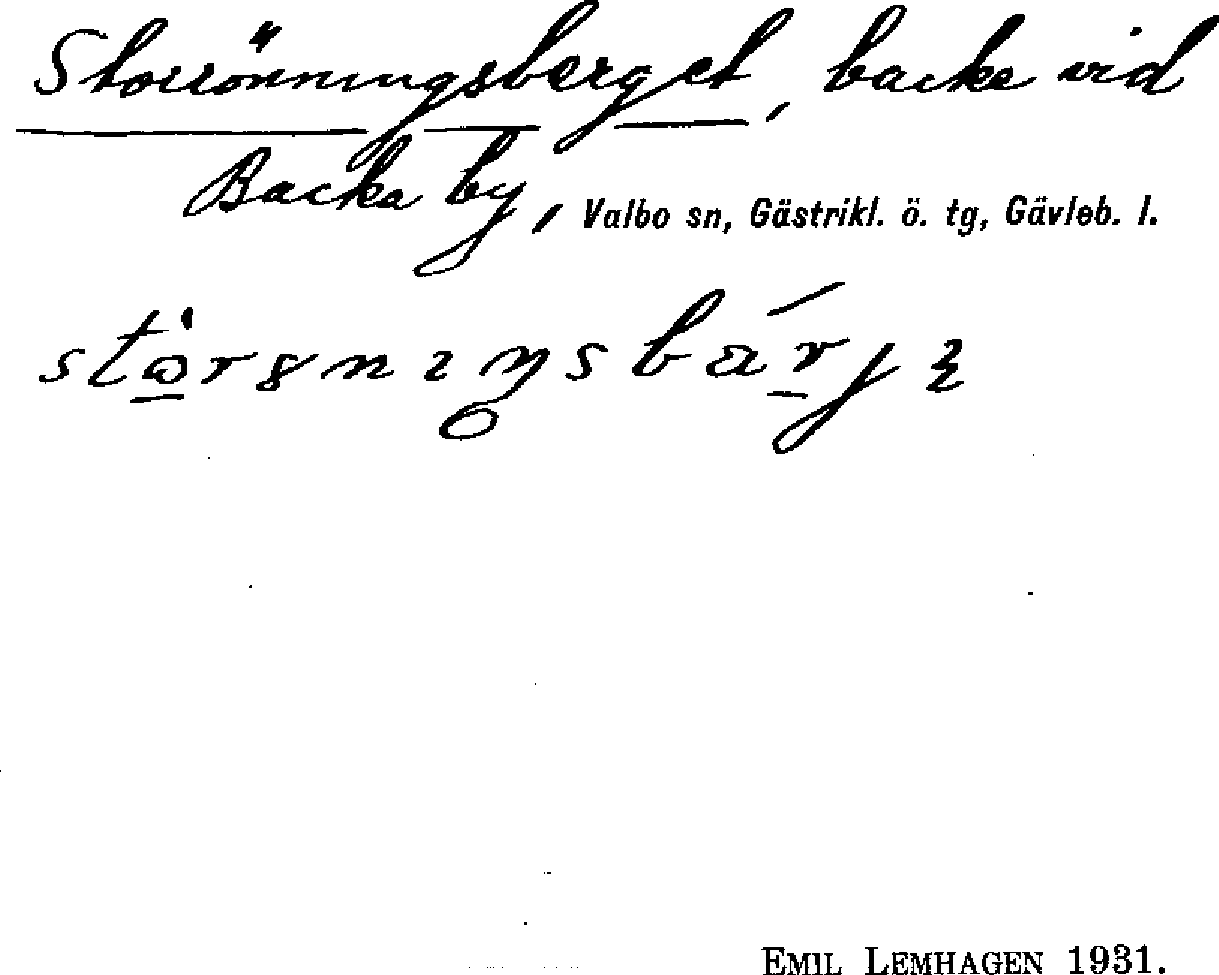 Storrönningsberget, backe vid
Backa by, Valbo sn, Gästrikl. ö. tg, Gävleb. l.
EMIL LEMHAGEN 1931.